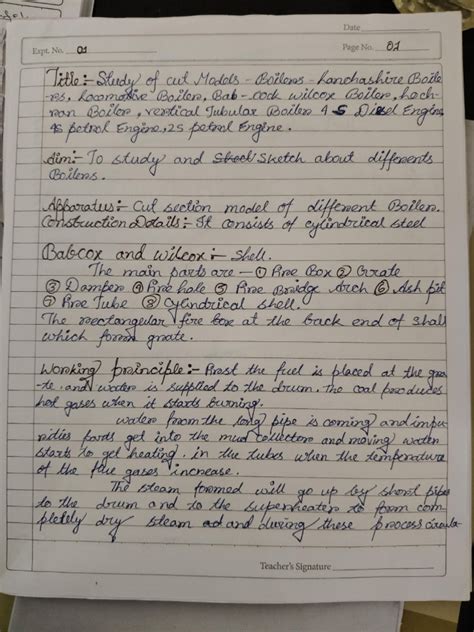 Date
Expt. No. 01
Page No. 01
Title:- Study of cut Models - Boilers - Lanchashire Boile
-rs, Locomotive Boiler, Bab-cock wilcox Boiler, Loch-
ran Boiler, vertical Tubular Boiler 4 S Diesel Engine,
4s petrol Engine, 2S petrol Engine.
Aim:- To study and Sketch about differents
Boilers.
Apparatus:- Cut section model of different Boiler.
Construction Details:- It consists of cylindrical steel
Babcox and wilcox:- Shell.
The main parts are - ① Fire Box ② Grate
③ Damper ④ Fire hole ⑤ Fire Bridge Arch ⑥ Ash pit
⑦ Fire Tube ⑧ Cylindrical shell.
The rectangular fire box at the back end of shall
which form grate.
Working principle:- First the fuel is placed at the gra-
te and water is supplied to the drum. The coal produces
hot gases when it starts burning.
water from the long pipe is coming and impu-
rities parts get into the mud collectors and moving water
starts to get heating. in the tubes when the temperature
of the flue gases increase.
The steam formed will go up by short pipe
to the drum and to the superheater to form com-
pletely dry steam ad and during these process
Teacher's Signature